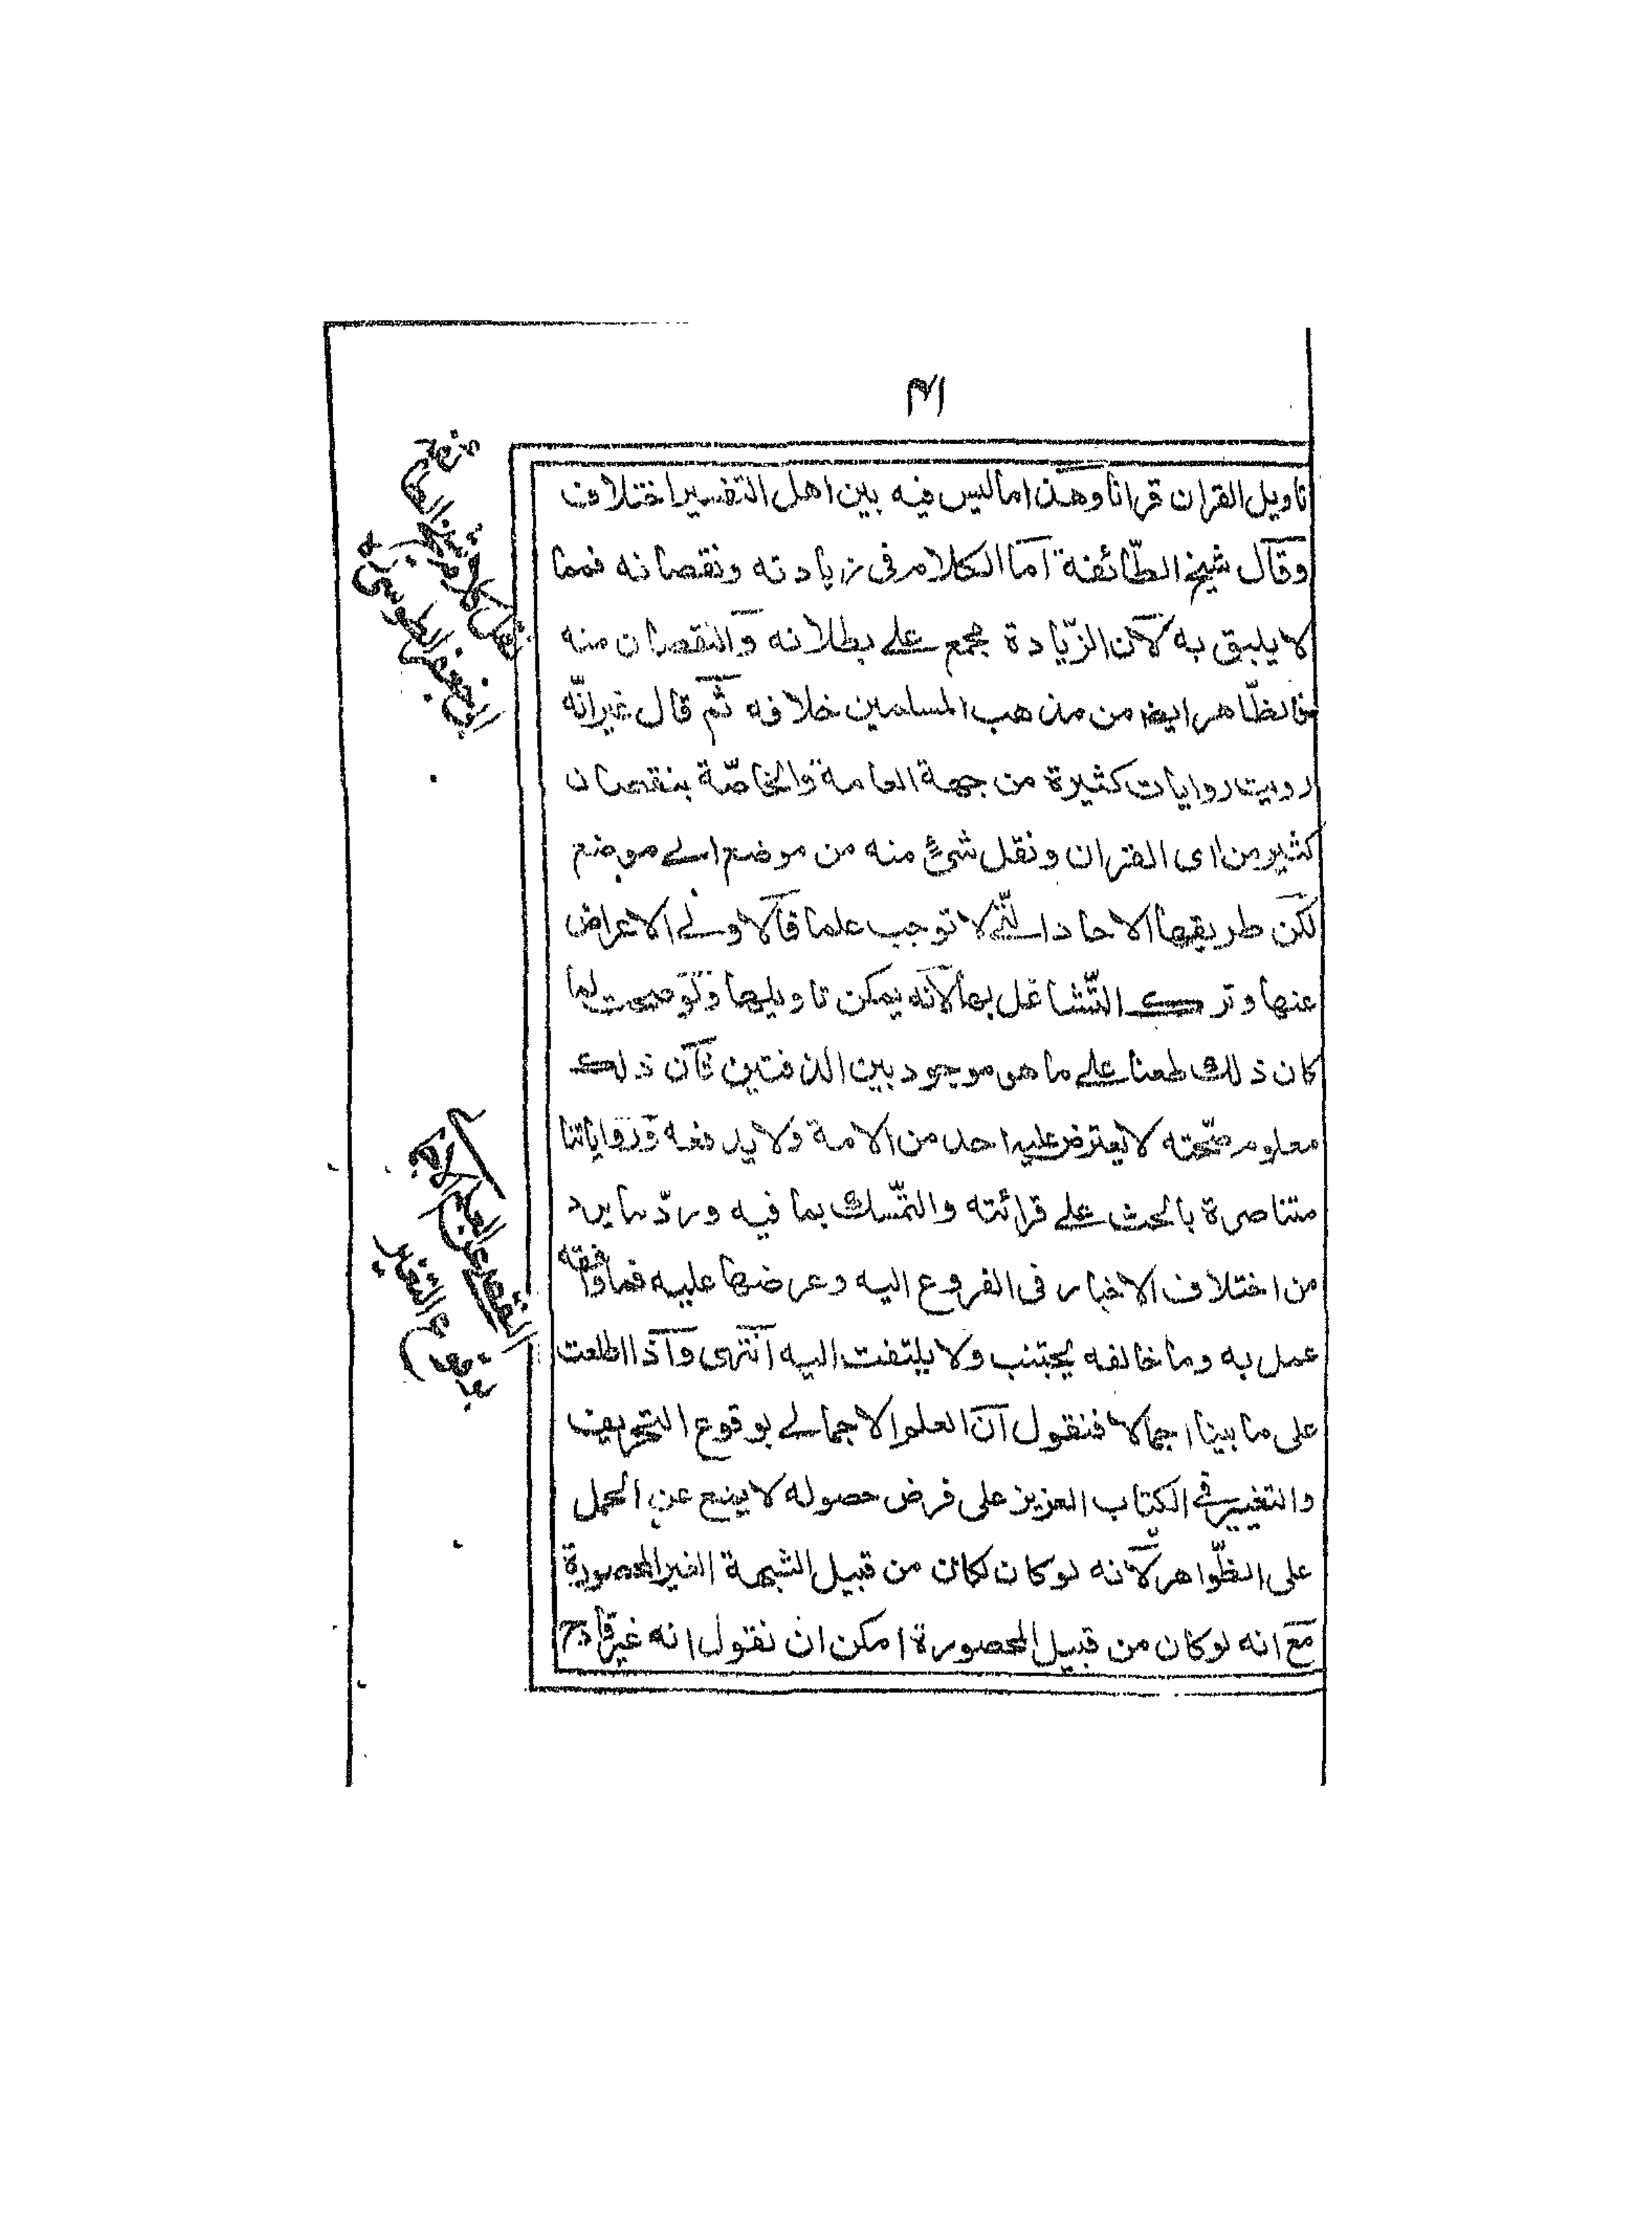 تاويل القران قرانا وهذا ما ليس فيه بين اهل التفسير اختلاف
وقال شيخ الطّائفة اما الكلام فى زيادته ونقصانه فمما
لا يليق به لان الزّيادة مجمع على بطلانه والنقصان منه
فالظّاهر ايضا من مذهب المسلمين خلافه ثم قال غير انّه
رويت روايات كثيرة من جهة العامة والخاصّة بنقصان
كثير من اى القران ونقل شئ منه من موضع الى موضع
لكن طريقها الاحاد التّى لا توجب علما فالاولى الاعراض
عنها وترك التّشاغل بها لانه يمكن تاويلها ولو صحت لما
كان ذلك طعنا على ما هو موجود بين الدفتين فان ذلك
معلوم صحّته لا يعترض عليه احد من الامة ولا يدفعه ورواياتنا
متناصرة بالحث على قرائته والتمّسك بما فيه وردّ ما يرد
من اختلاف الاخبار فى الفروع اليه وعرضها عليه فما وافقه
عمل به وما خالفه يجتنب ولا يلتفت اليه انتهى واذا اطلعت
على ما بينا اجمالا فنقول ان العلم الاجمالى بوقوع التحريف
والتغيير فى الكتاب العزيز على فرض حصوله لا يمنع عن العمل
على الظّواهر لانه لو كان لكان من قبيل الشبهة الغير المحصورة
مع انه لو كان من قبيل المحصورة امكن ان نقول انه غير قادح
ابى جعفر الطوسى
بوقوع التغيير